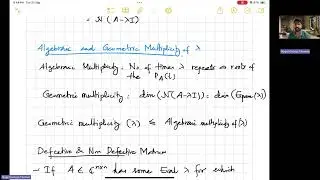 = N (A-λI)
Algebraic and Geometric Multiplicity of λ
Algebraic Multiplicity: No of times λ repeats as roots of
the P_A(λ)
Geometric multiplicity: dim(N(A-λI)) = dim(
Geometric multiplicity (λ) ≤ Algebraic multiplicity of (λ)
Defective & Non Defective Matrices
- If A ∈ ℂⁿˣⁿ has some Eval λ for which